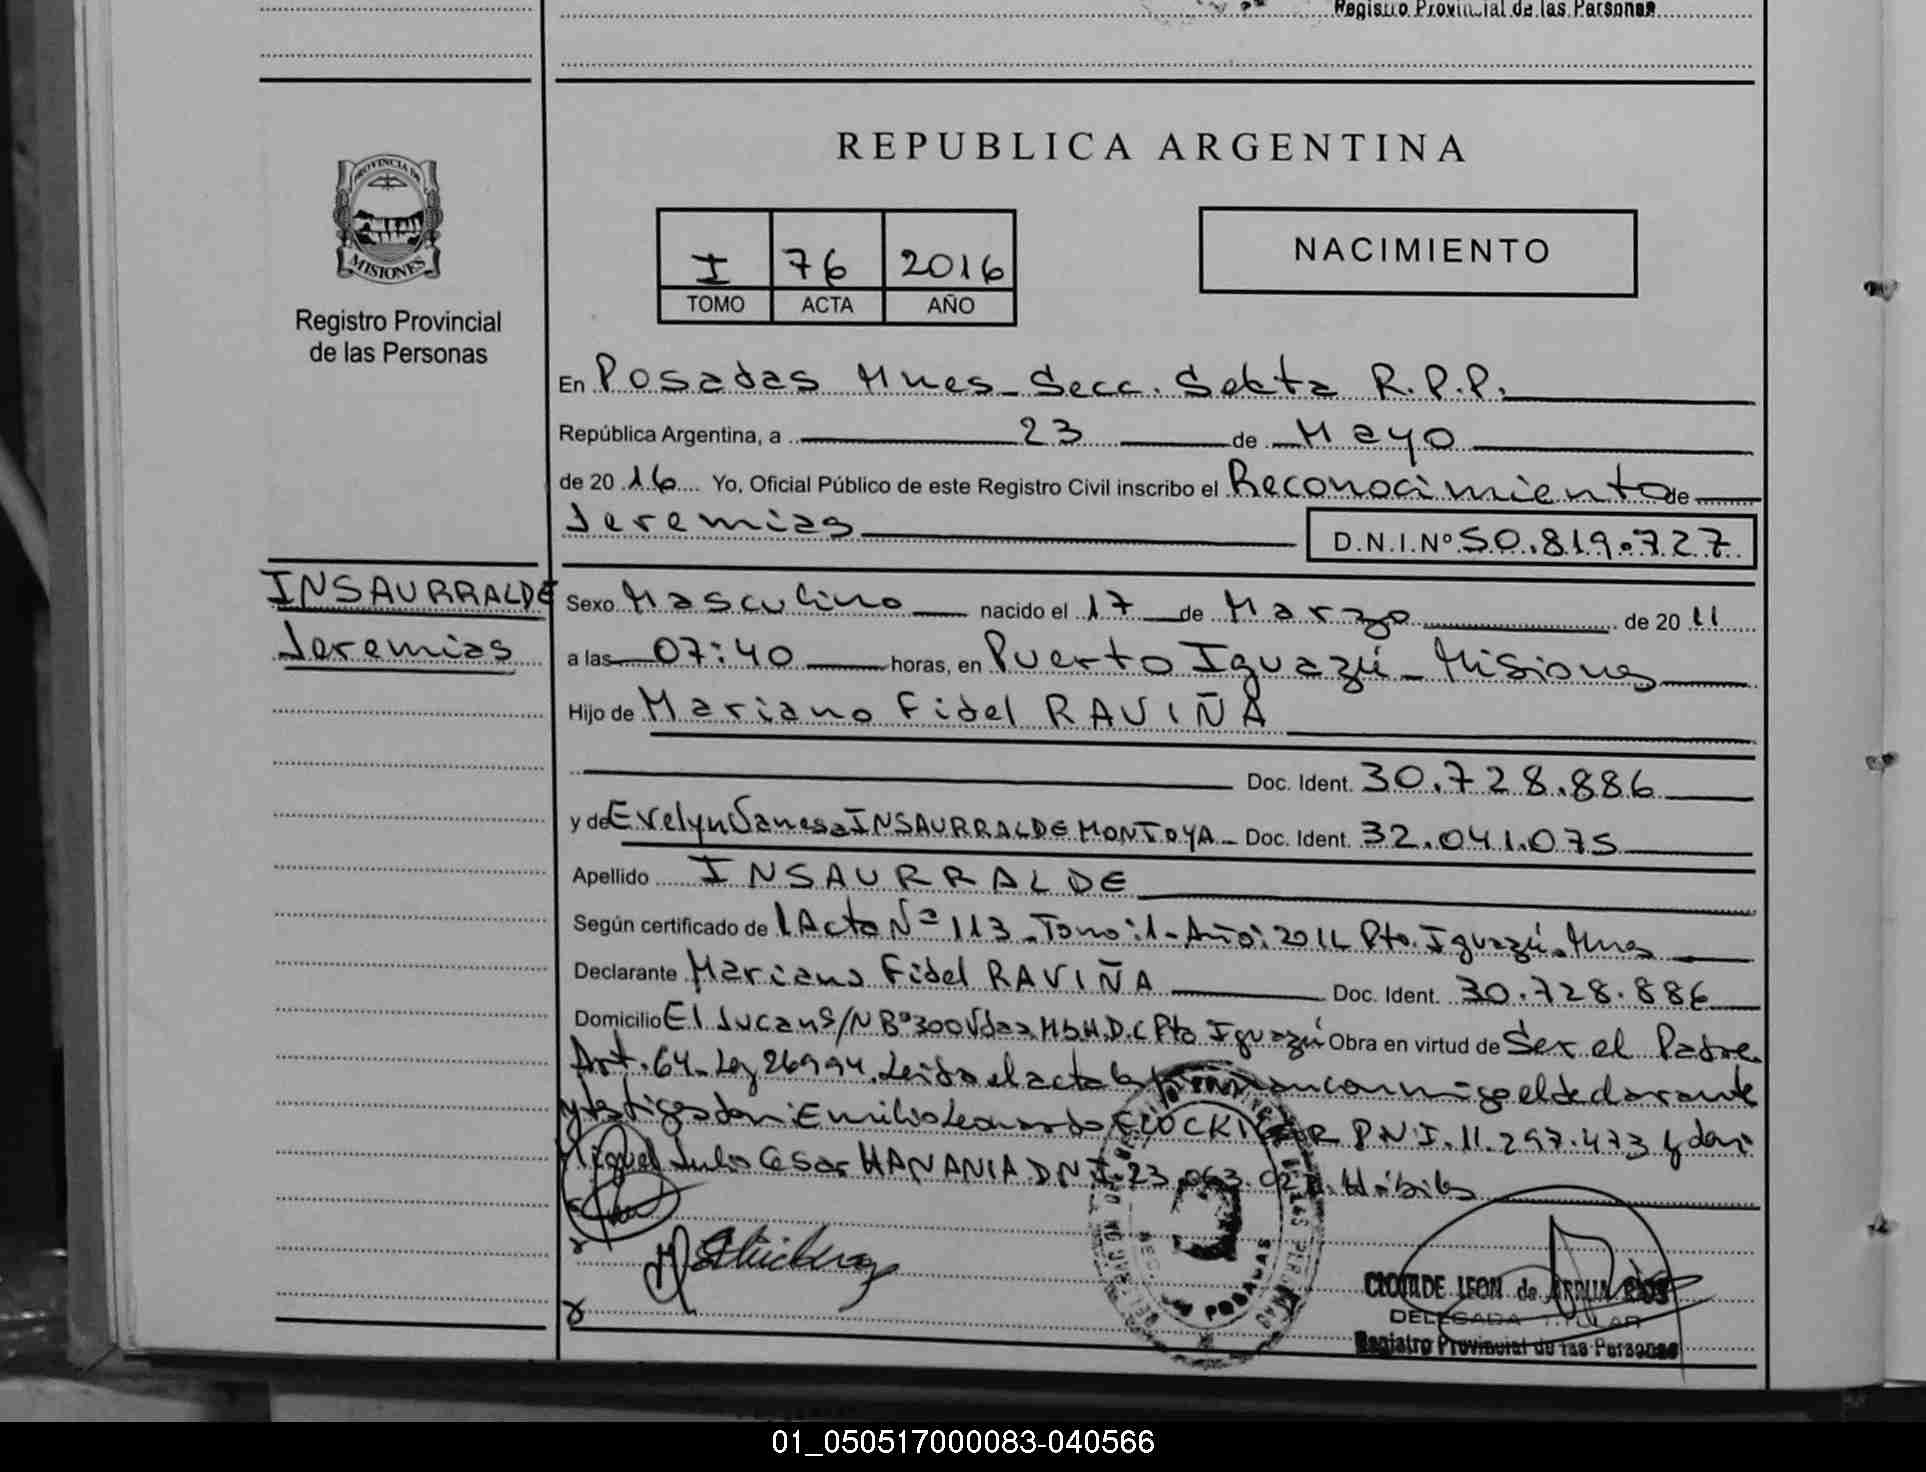 Registro Provincial de las Personas
REPUBLICA ARGENTINA
PROVINCIA DE
MISIONES
Registro Provincial
de las Personas
I 76 2016
TOMO ACTA AÑO
NACIMIENTO
En Posadas Mnes - Secc. Sekta R.P.P.
República Argentina, a 23 de Mayo
de 2016 Yo, Oficial Público de este Registro Civil inscribo el Reconocimiento de
Jeremias
D.N.I.Nº 50.819.727
INSAURRALDE
Jeremias
Sexo Masculino nacido el 17 de Marzo de 2011
a las 07:40 horas, en Puerto Iguazú - Misiones
Hijo de Mariano Fidel RAVIÑA
Doc. Ident. 30.728.886
y de Evelyn Vanesa INSAURRALDE MONTOYA - Doc. Ident. 32.041.075
Apellido INSAURRALDE
Según certificado de Acta Nº 113 - Tomo: 1 - Año: 2011 Pto. Iguazú. Mnes
Declarante Mariano Fidel RAVIÑA Doc. Ident. 30.728.886
Domicilio El S/N Bº 300 Pto Iguazú Obra en virtud de Ser el Padre.
Art. 64 - Ley 26994. Leida el acta la firman conmigo el declarante
y testigos don: Emilio Leonardo D.N.I. 11.297.473 y don:
Miguel Julio Cesar HANANIA DNI 23.063. Hábiles
POSADAS
CLOTILDE LEON de
DELEGADA TITULAR
Registro Provincial de las Personas
01_050517000083-040566